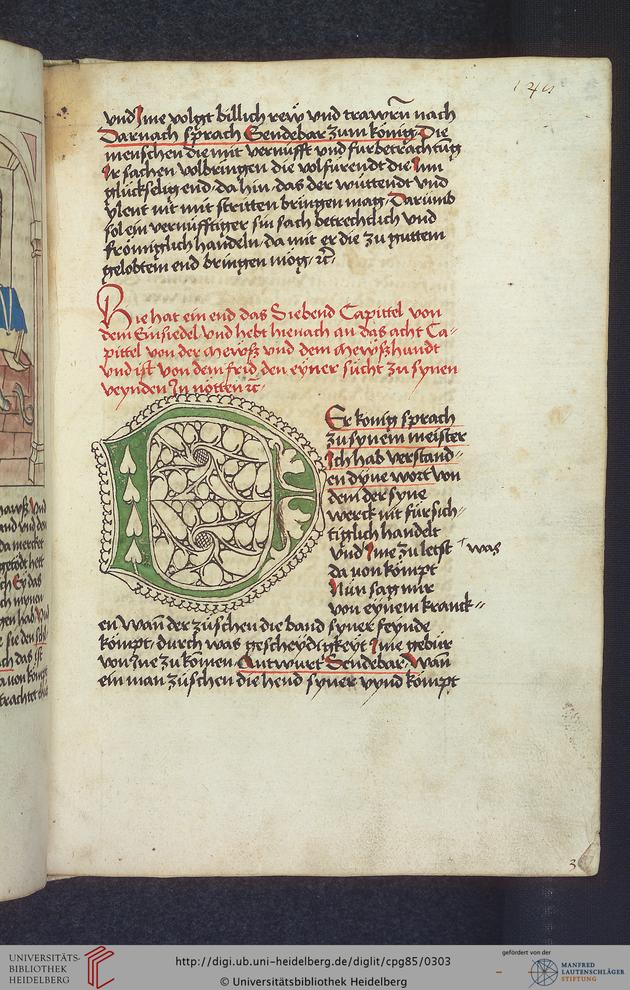 vnd Ime volgt billich rew vnd trawrn̄ nach
Darnach sprach Sendebar zum konig Die
menschen die mit vernufft vnd furbetrachtūg
Ir sachen volbringen die volfurendt die Inn
glückselig end, da hin, das der wüttendt vnd
ylent nit mit stritten bringen mag, Darumb
sol ein vernüfftiger sin sach betrechtlich vnd
fromiglich handeln, da mit er die zu guttem
gelobtem end bringen mög, ꝛc̄.
Hie hat ein end das Siebend Capittel von
dem Einsiedel vnd hebt hienach an das acht Ca-
pittel von der Mewsz vnd dem Mewszhundt
vnd ist von dem frid, den eyner sücht zu synen
veynden In nötten ꝛc̄
Er konig sprach
zu synem meister
Ich hab verstand-
en dyne wort von
dem der syne
werck nit fürsich-
tiglich handelt
vnd Ime zu letst was
da von kompt
Nun sag mir
von eynem kranck-
en Wan̄ der züschen die band syner feynde
kompt, durch was gescheydigkeyt Ime gebür
von Ine zu komen Antwurt Sendebar Wan̄
ein man züschen die hend syner vynd kompt
UNIVERSITÄTS-
BIBLIOTHEK
HEIDELBERG
http://digi.ub.uni-heidelberg.de/diglit/cpg85/0303
© Universitätsbibliothek Heidelberg
gefördert von der
MANFRED
LAUTENSCHLÄGER
STIFTUNG